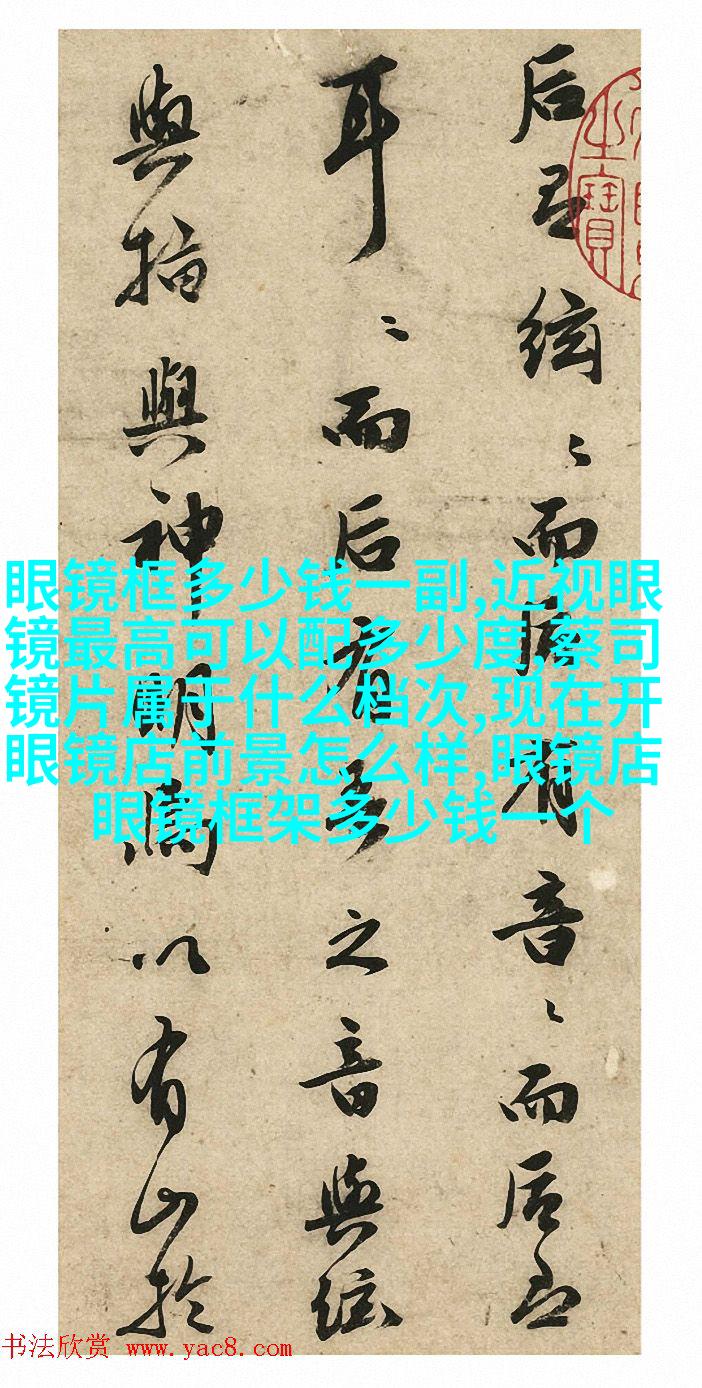 后有絃〻而后有音〻而后
耳〻而后有吾之音與絃
與指與神明以有於
之寶
眼镜框多少钱一副,近视眼
镜最高可以配多少度,蔡司
镜片属于什么档次,现在开
眼镜店前景怎么样,眼镜店
眼镜框架多少钱一个
书法欣赏 www.yac8.com